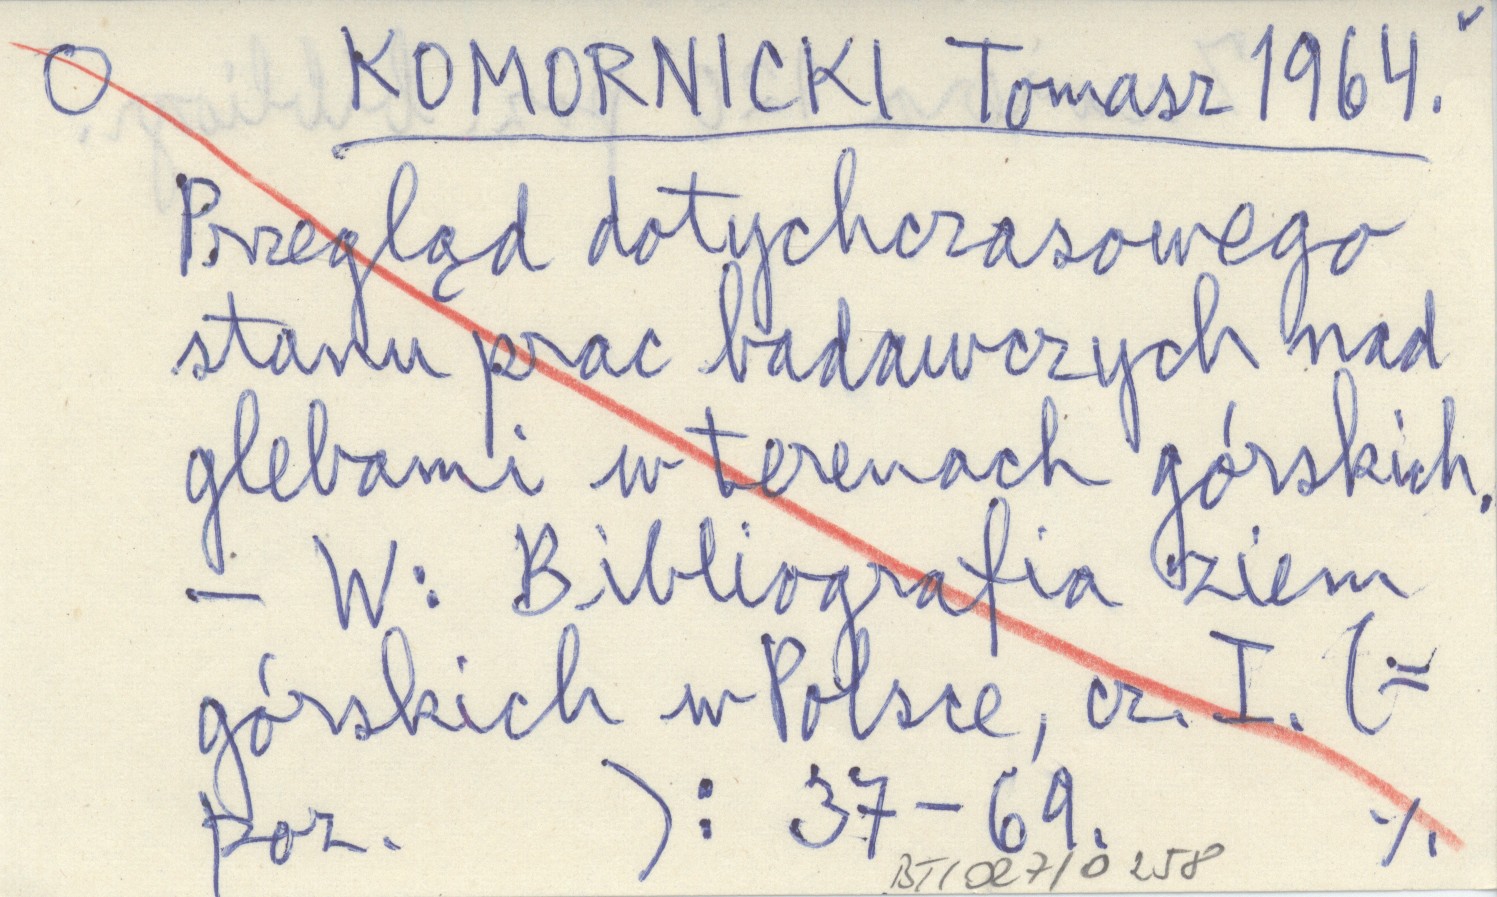 O KOMORNICKI Tomasz 1964.
Przegląd dotychczasowego
stanu prac badawczych nad
glebami w terenach górskich.
— W: Bibliografia ziem
górskich w Polsce, cz. I. (=
poz. ): 37-69. ./.
BT/027/0258